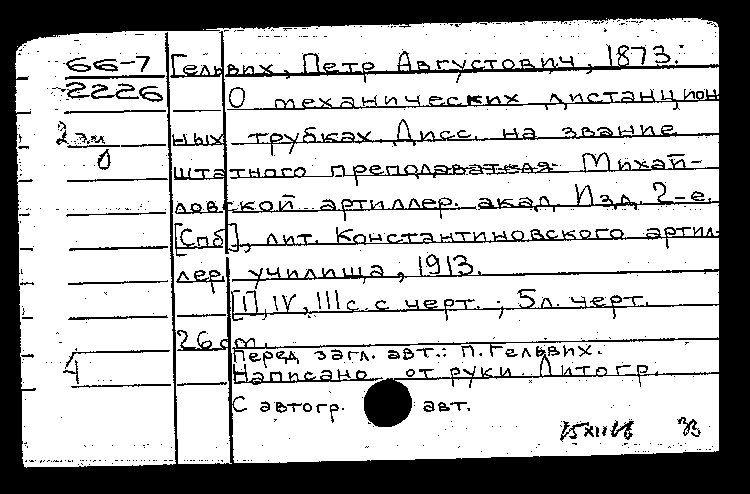 66-7 Гельвих, Петр Августович, 1873.
2226 О механических дистанцион
2 эк ных трубках Дисс. на звание
штатного преподавателя Михай-
ловской артиллер. акад. Изд. 2-е.
[Спб], лит. Константиновского артил-
лер. училища, 1913.
[I], IV, 111 с. с черт.; 5 л. черт.
26 см.
Перед загл. авт.: П. Гельвих.
4 Написано от руки. Литогр.
С автогр. авт.